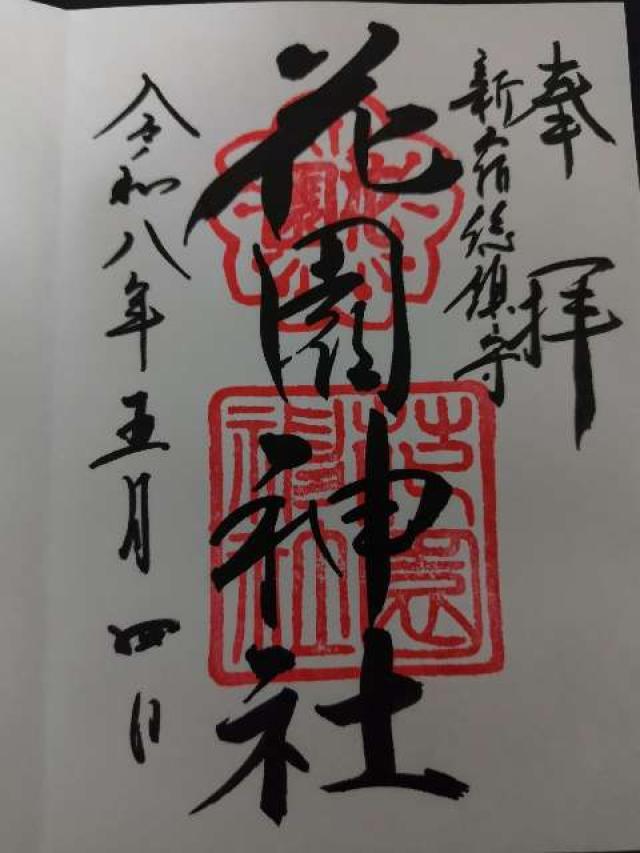 奉拝
新宿総鎮守
花園神社
令和八年五月四日
花園神社